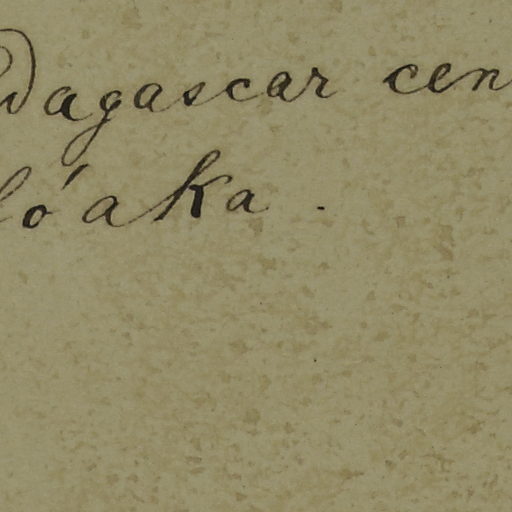 dagascar cen
lóaka.